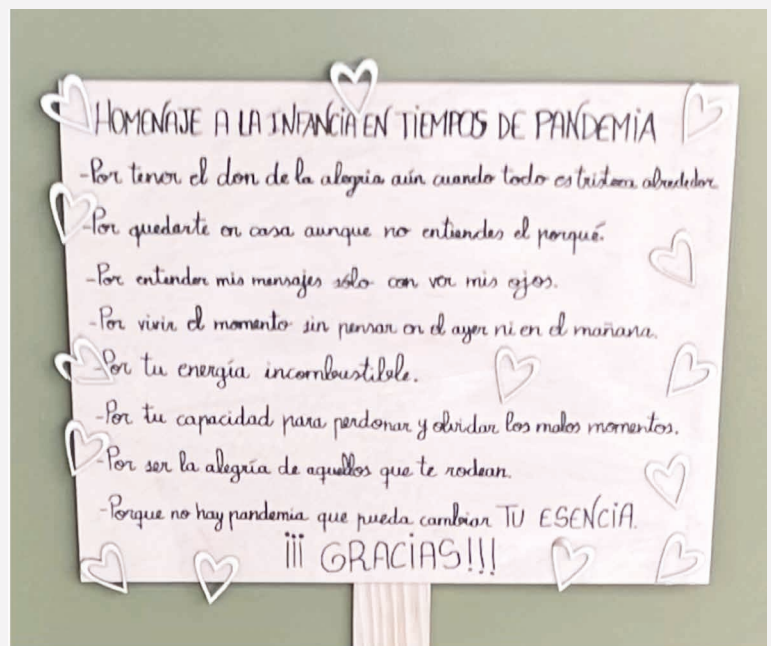 HOMENAJE A LA INFANCIA EN TIEMPOS DE PANDEMIA
-Por tener el don de la alegria aún cuando todo es tristeza alrededor
-Por quedarte en casa aunque no entiendes el porqué.
-Por entender mis mensajes sólo con ver mis ojos.
-Por vivir el momento sin pensar en el ayer ni en el mañana.
-Por tu energía incombustible.
-Por tu capacidad para perdonar y olvidar los malos momentos.
-Por ser la alegría de aquellos que te rodean.
-Porque no hay pandemia que pueda cambiar TU ESENCIA.
¡¡¡ GRACIAS!!!